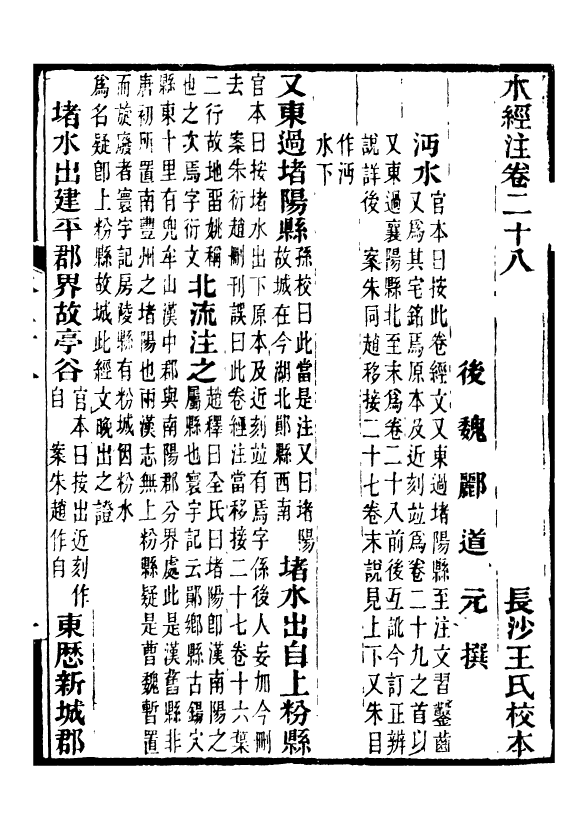 水經注卷二十八　長沙王氏校本
後魏酈道元撰
沔水
官本曰按此卷經文又東過堵陽縣至注文習鑿齒
又爲其宅銘焉原本及近刻竝爲卷二十九之首以
又東過襄陽縣北至末爲卷二十八前後互訛今訂正辨
說詳後　案朱同趙移接二十七卷末說見上下又朱目
作沔
水下
又東過堵陽縣
孫校曰此當是注又曰堵陽
故城在今湖北鄖縣西南
堵水出自上粉縣
官本曰按堵水出下原本及近刻竝有焉字係後人妄加今刪
去　案朱衍趙刪刊誤曰此卷經注當移接二十七卷十六葉
二行故地雷姚稱
也之次焉字衍文
北流注之
趙釋曰全氏曰堵陽卽漢南陽之
屬縣也寰宇記云鄖鄉縣古鍚穴
縣東十里有兜牟山漢中郡與南陽郡分界處此是漢舊縣非
唐初所置南豐州之堵陽也兩漢志無上粉縣疑是曹魏暫置
而旋廢者寰宇記房陵縣有粉城因粉水
爲名疑卽上粉縣故城此經文晚出之證
堵水出建平郡界故亭谷
官本曰按出近刻作
自　案朱趙作自
東歷新城郡